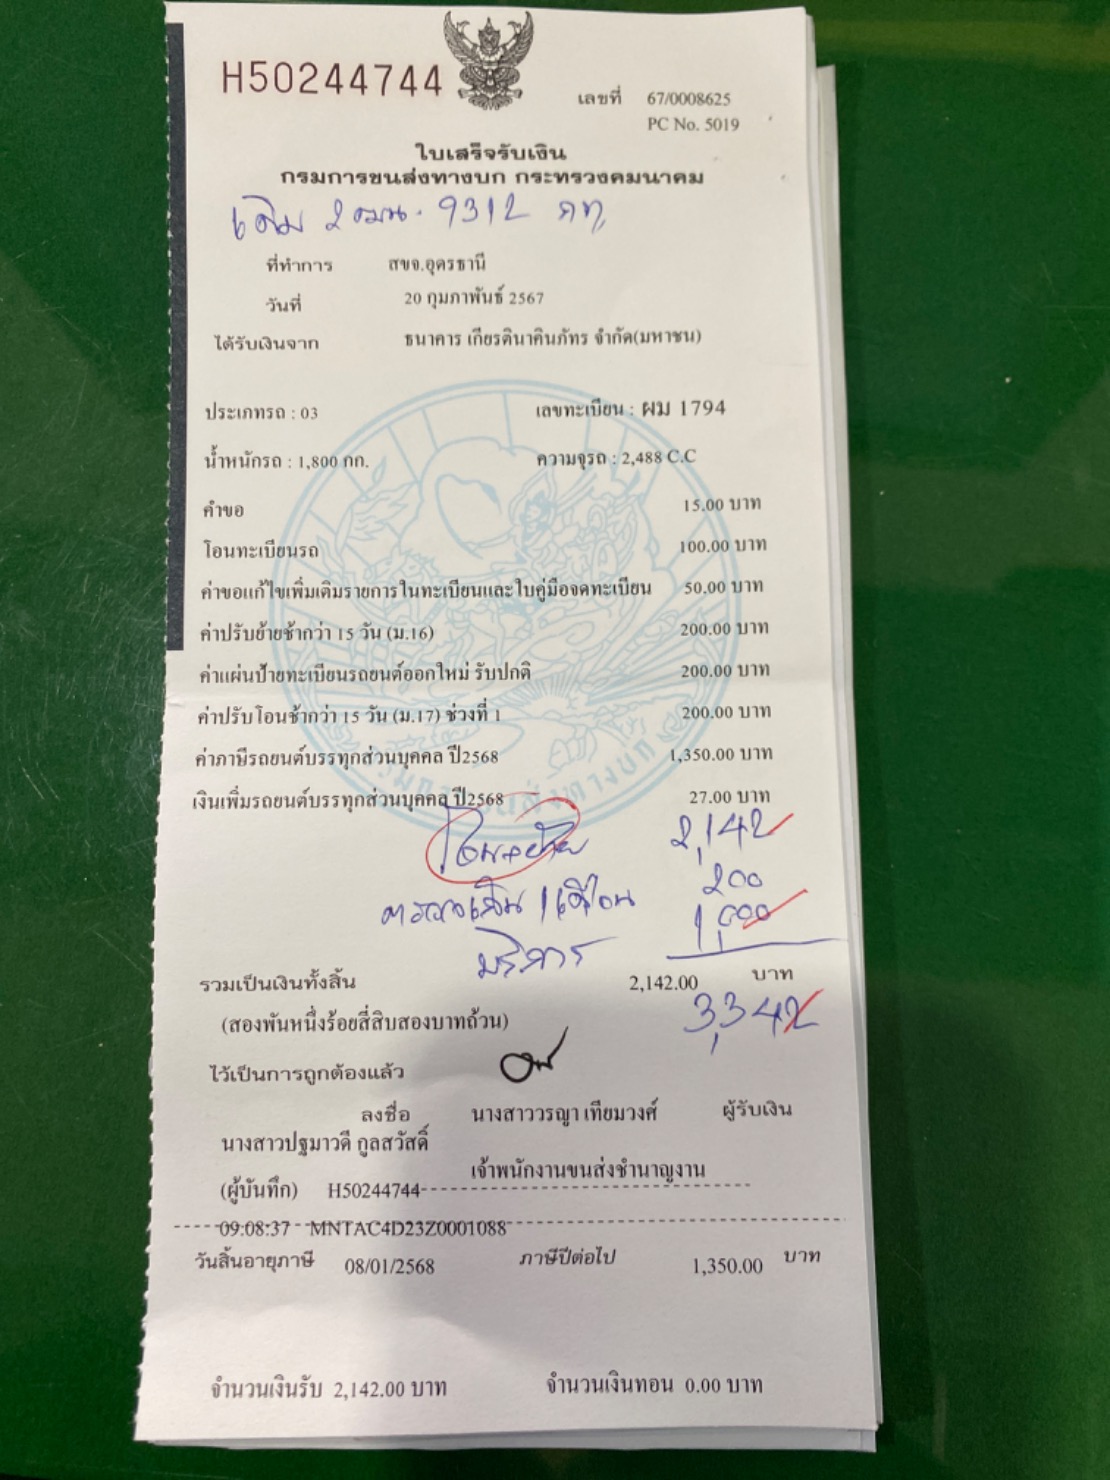 H50244744
เลขที่ 67/0008625
PC No. 5019
ใบเสร็จรับเงิน
กรมการขนส่งทางบก กระทรวงคมนาคม
เดิม 2ฒน. 9312 กท
ที่ทำการ สขจ.อุดรธานี
วันที่ 20 กุมภาพันธ์ 2567
ได้รับเงินจาก ธนาคาร เกียรตินาคินภัทร จำกัด(มหาชน)
ประเภทรถ : 03 เลขทะเบียน : ผม 1794
น้ำหนักรถ : 1,800 กก. ความจุรถ : 2,488 C.C
คำขอ 15.00 บาท
โอนทะเบียนรถ 100.00 บาท
ค่าขอแก้ไขเพิ่มเติมรายการในทะเบียนและใบคู่มือจดทะเบียน 50.00 บาท
ค่าปรับย้ายช้ากว่า 15 วัน (ม.16) 200.00 บาท
ค่าแผ่นป้ายทะเบียนรถยนต์ออกใหม่ รับปกติ 200.00 บาท
ค่าปรับโอนช้ากว่า 15 วัน (ม.17) ช่วงที่ 1 200.00 บาท
ค่าภาษีรถยนต์บรรทุกส่วนบุคคล ปี2568 1,350.00 บาท
เงินเพิ่มรถยนต์บรรทุกส่วนบุคคล ปี2568 27.00 บาท
กรมการขนส่งทางบก
2,142
200
บริการ 1,000
รวมเป็นเงินทั้งสิ้น 2,142.00 บาท
(สองพันหนึ่งร้อยสี่สิบสองบาทถ้วน) 3,342
ไว้เป็นการถูกต้องแล้ว
ลงชื่อ นางสาววรญา เทียมวงศ์ ผู้รับเงิน
นางสาวปฐมาวดี กูลสวัสดิ์
เจ้าพนักงานขนส่งชำนาญงาน
(ผู้บันทึก) H50244744
09:08:37 MNTAC4D23Z0001088
วันสิ้นอายุภาษี 08/01/2568 ภาษีปีต่อไป 1,350.00 บาท
จำนวนเงินรับ 2,142.00 บาท จำนวนเงินทอน 0.00 บาท